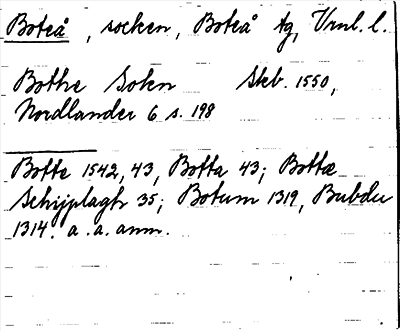 Boteå, socken, Boteå tg, Vrnl. l.
Bothe Sokn Skb. 1550,
Nordlander 6 s. 198
Botte 1542, 43, Botta 43; Bottæ
Schijplagh 35; Botum 1319, Bubdu
1314. a. a. anm.